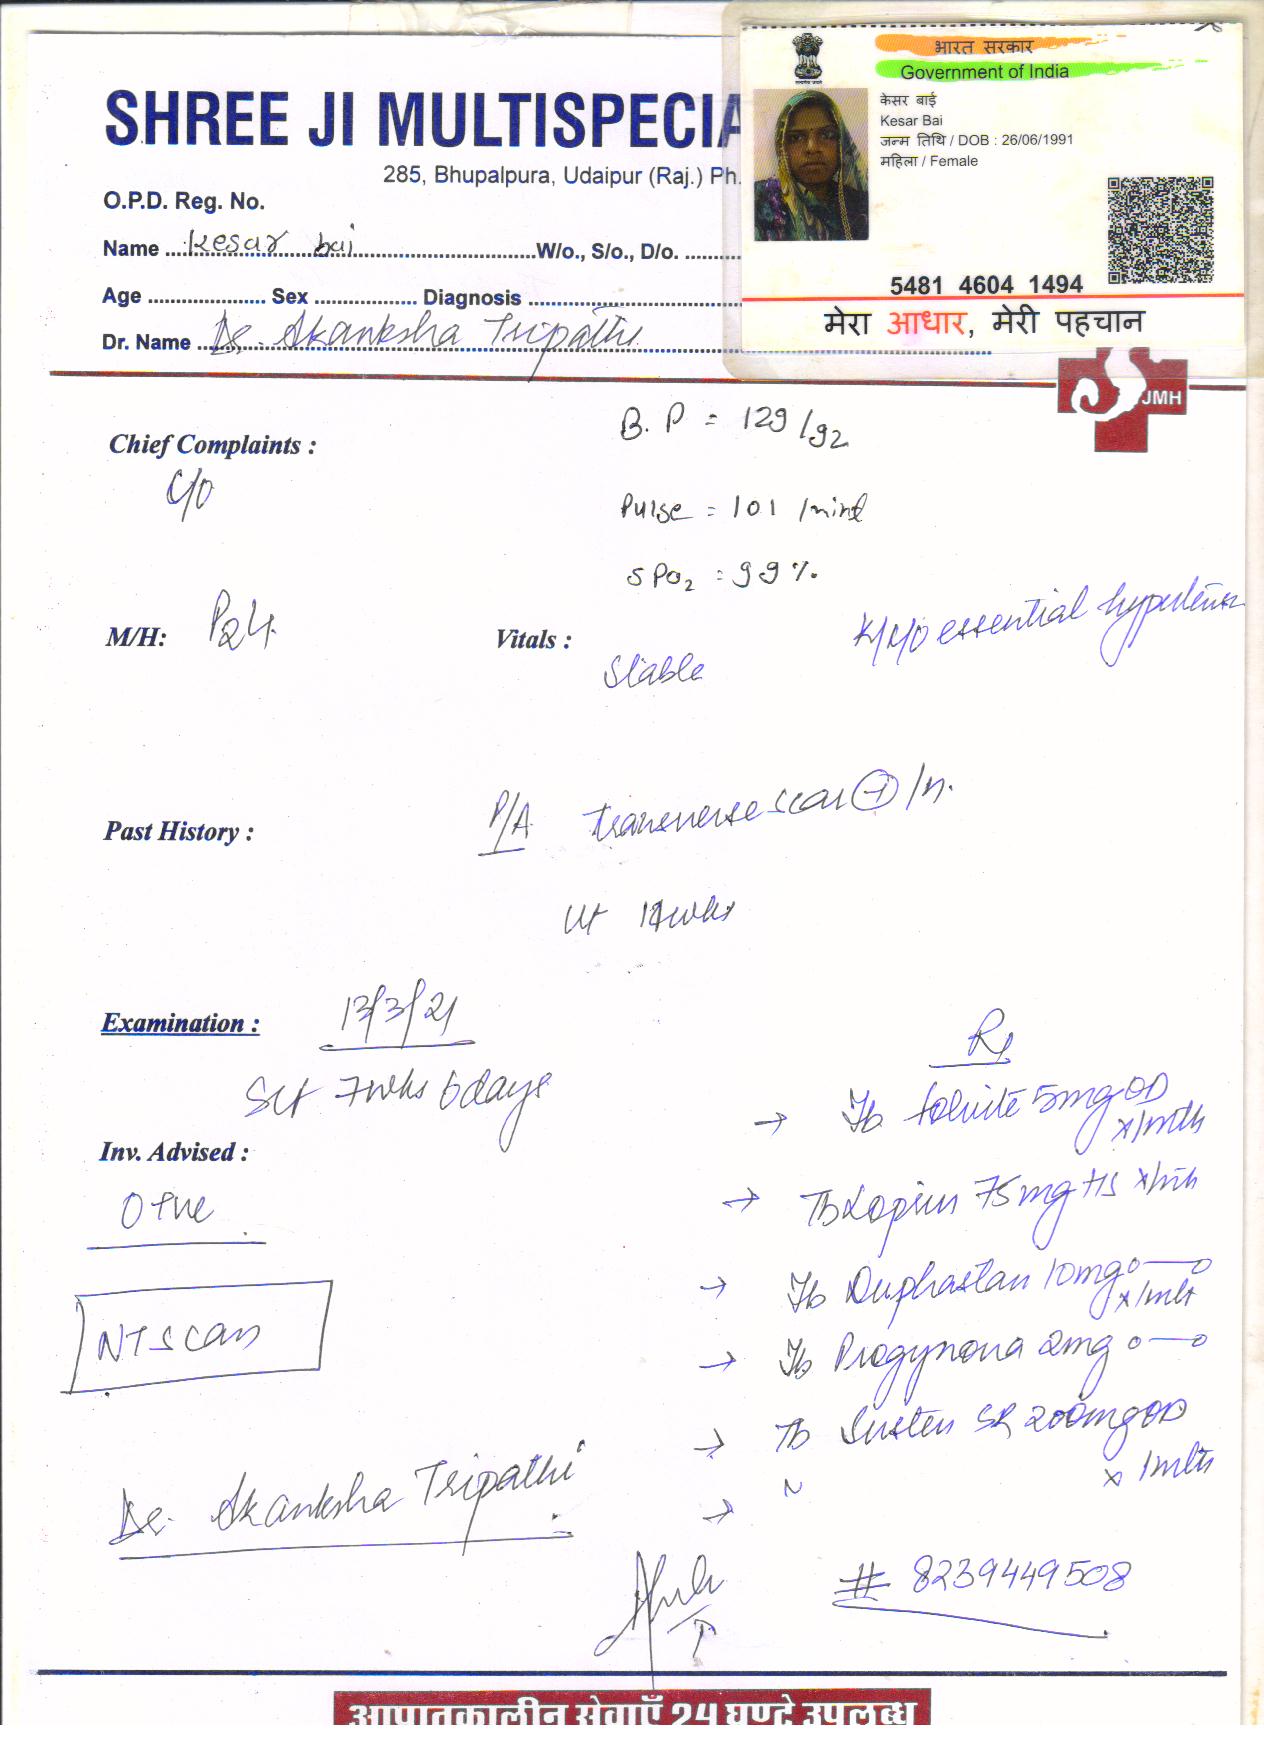 SHREE JI MULTISPECIA
285, Bhupalpura, Udaipur (Raj.) Ph.
O.P.D. Reg. No.
Name Kesar bai W/o., S/o., D/o.
Age Sex Diagnosis
Dr. Name Dr. Akanksha Tripathi
भारत सरकार
Government of India
केसर बाई
Kesar Bai
जन्म तिथि / DOB : 26/06/1991
महिला / Female
5481 4604 1494
मेरा आधार, मेरी पहचान
JMH
Chief Complaints :
C/O
B.P = 129/92
Pulse = 101 /mint
SPO2 = 99%
M/H: P2L
Vitals :
Stable
K/c/o essential hypertension
Past History :
P/A transverse scar + /n.
Ut 14wks
Examination : 13/3/21
7wks 6days
Inv. Advised :
O +ve
NT Scan
Rx
→ Tb folvite 5mg OD
x/mth
→ Tb Loprin 75mg HS x/mth
→ Tb Duphaston 10mg o—o
x/mth
→ Tb Progynova 2mg o—o
→ Tb Susten SR 200mg OD
x 1mth
→
Dr. Akanksha Tripathi
# 8239449508
आपातकालीन सेवाएँ 24 घण्टे उपलब्ध